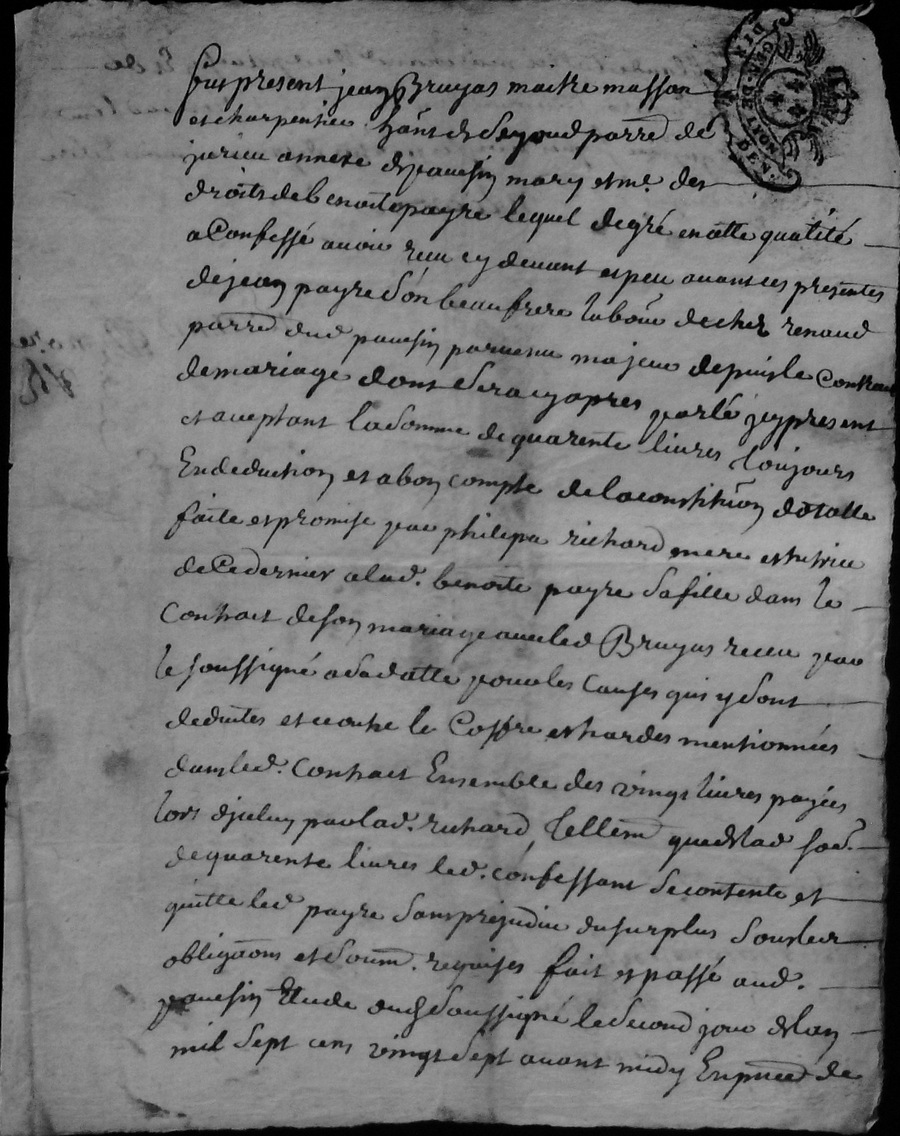 GEN. DE LYON
DIX DEN.
Fut present jean Bruyas maitre masson
et charpentier hãnt de Seyoud parre de
jurieu annexe de pavesin mary et me. des
droits de benoite payre lequel de gré en cette qualité
a Confessé avoir receu cy devant et peu avant ces presentes
de jean payre son beaufrere labour de chez renaud
parre dud pavesin parvenu majeur depuis le Contract
de mariage dont sera cy apres parlé jcy present
et aceptant la somme de quarente livres toujours
En deduction et a bon compte de la constitũon dotalle
faite et promise par philipa richard mere et tutrice
de Ce dernier a lad. benoite payre sa fille dans le
Contract de son mariage avec led Bruyas receu par
le soussigné a sa datte pour les Causes qui y sont
deduites et et outre le Coffre et hardes mentionnées
dans led. Contract Ensemble des vingt livres payées
lors djceluy par lad. richard, Tellem̃ que de lad so͠e.
de quarente livres led. confessant se contente et
quitte led payre sans prejudice du surplus sous leur
obligãons et soum̃. requises fait et passé aud.
pavesin Etude du soussigné le second jour de lan
mil sept cens vingt sept avant midy En p͠nce de